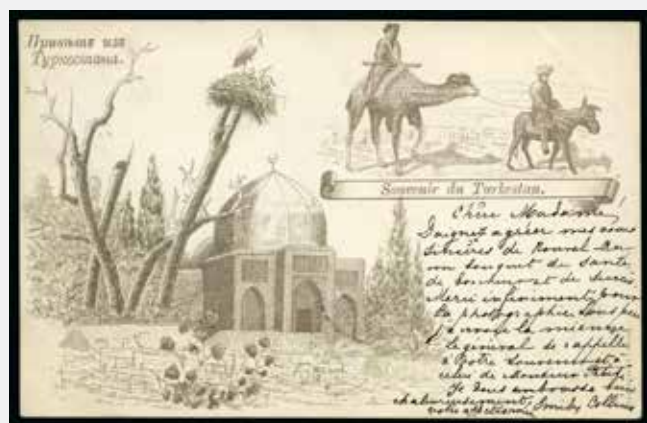 Привѣтъ изъ
Туркестана.
Souvenir du Turkestan.
Chère Madame,
Daignez agréer mes vœux
sincères de Nouvel An
un bouquet de santé
de bonheur et de succès
Merci infiniment pour
la photographie. Sous peu
j'envoie la mienne
Le général se rappelle
à Votre Souvenir et à
celui de Monsieur
Je Vous embrasse bien
chaleureusement
votre affectionnée Emily Collins